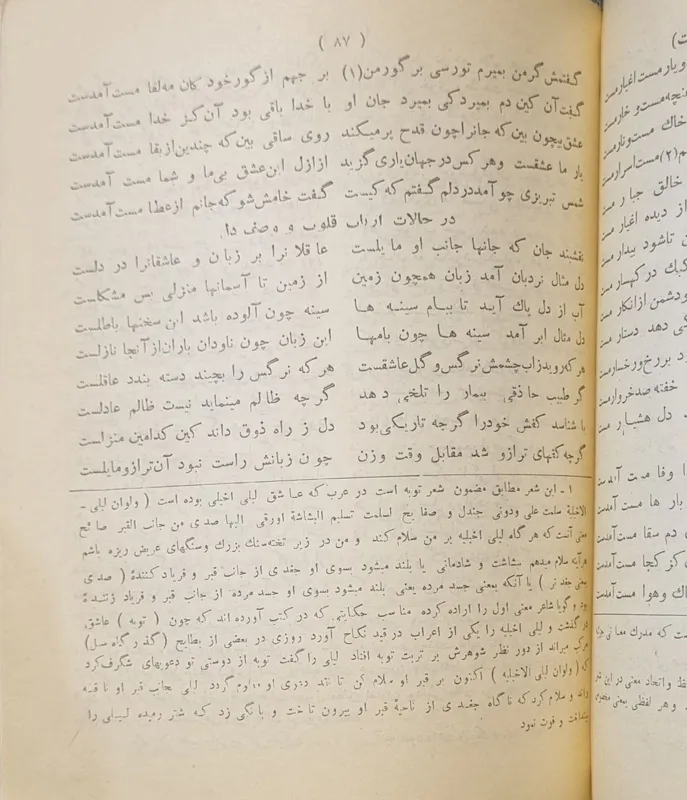 ( ۸۷ )
گفتمش گر من بمیرم تو رسی بر گور من (۱) بر جهم از گور خود کان مه لقا مست آمدست
گفت آن کین دم بمیرد کی بمیرد جان او با خدا باقی بود آن کز خدا مست آمدست
عشق بیچون بین که جانرا چون قدح پر میکند روی ساقی بین که چندین از بقا مست آمدست
یار ما عشقست و هر کس در جهان یاری گزید از ازل این عشق بی ما و شما مست آمدست
شمس تبریزی چو آمد در دلم گفتم که کیست گفت خامش شو که جانم از عطا مست آمدست
در حالات ارباب قلوب و وصف دل
نقشبند جان که جانها جانب او مایلست عاقلانرا بر زبان و عاشقانرا در دلست
دل مثال نردبان آمد زبان همچون زمین از زمین تا آسمانها منزلی بس مشکلست
آب از دل پاک آید تا ببام سینه ها سینه چون آلوده باشد این سخنها باطلست
دل مثال ابر آمد سینه ها چون بامها این زبان چون ناودان باران از آنجا نازلست
هر که روید زاب چشمش نرگس و گل عاشقست هر که نرگس را بچیند دسته بندد عاقلست
گر طبیب حاذقی بیمار را تلخی دهد گر چه ظالم مینماید نیست ظالم عادلست
پا شناسد کفش خود را گرچه تاریکی بود دل ز راه ذوق داند کین کدامین منزلست
گرچه کفهای ترازو شد مقابل وقت وزن چون زبانش راست نبود آن ترازو مایلست
۱ - این شعر مطابق مضمون شعر توبه است در عرب که عاشق لیلی اخیلی بوده است ( ولوان لیلی -
الاخیلیة سلمت علی ودونی جندل و صفایح لسلمت تسلیم البشاشة اورقی الیها صدی من جانب القبر صائح
معنی آنست که هر گاه لیلی اخیلیه بر من سلام کند و من در زیر تخته سنگ بزرگ و سنگهای عریض ریزه باشم
هرآینه سلام میدهم ببشاشت و شادمانی یا بلند میشود بسوی او جغدی از جانب قبر و فریاد کنندهٔ ( صدی
بمعنی جغد نر ) یا آنکه بمعنی جسد مرده یعنی بلند میشود بسوی او جسد مرده از جانب قبر و فریاد زنندهٔ
بود و گویا شاعر معنی اول را اراده کرده مناسب حکایتی که در کتب آورده اند که چون ( توبه ) عاشق
در گذشت و لیلی اخیلیه را یکی از اعراب در قید نکاح آورد روزی در بعضی از بطایح ( گذر گاه سیل )
مرکب میراند از دور نظر شوهرش بر تربت توبه افتاد لیلی را گفت توبه از دوستی تو دعویهای شگرف کرد
که ( ولوان لیلی الاخیلیه ) اکنون بر قبر او سلام کن تا لیلی بجانب قبر او ناقه
راند و سلام کرد که ناگاه جغدی از ناحیهٔ قبر او بیرون تاخت و بانگی زد که شتر رمیده لیلی را
بینداخت و فوت نمود